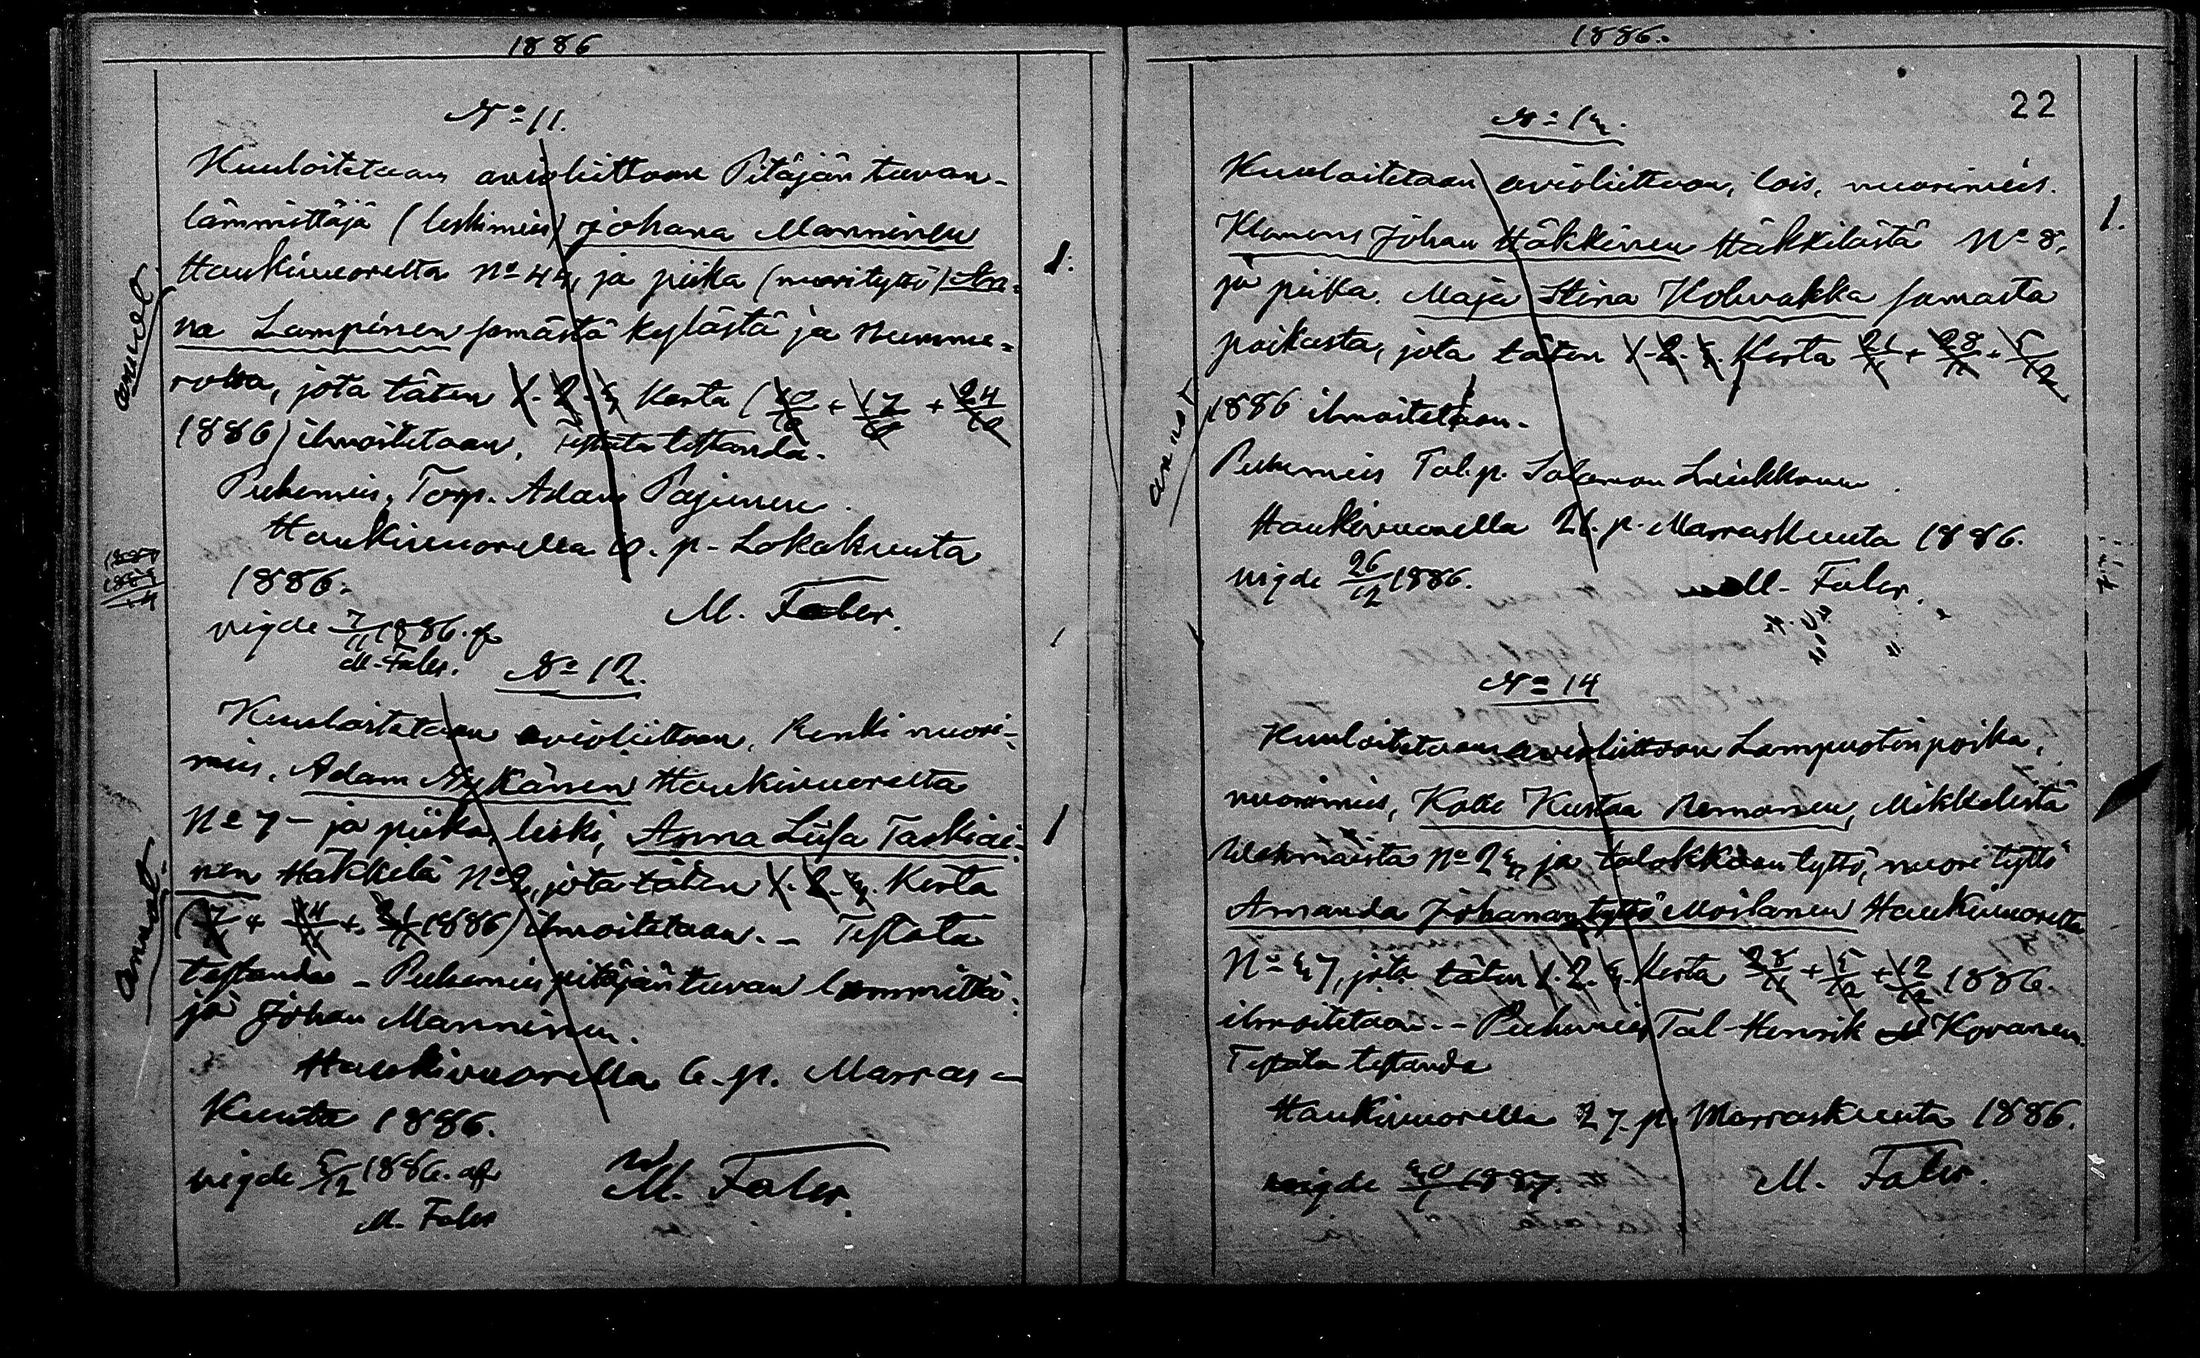 1886
No 11.
Kuuloitetaan avioliittoon Pitäjän tuvan-
lämmittäjä (leskimies) Johana Manninen
Haukivuorelta No 44, ja piika (nuorityttö) An-
na Lampinen samasta kylästä ja numme-
rosta, jota täten 1. 2. 3. Kerta (10/10 + 17/10 + 24/10
1886) ilmoitetaan. Testata testanda.
Puhemies, Torp. Adam Pajunen.
Haukivuorella 10. p. Lokakuuta
1886.
M. Faler.
vigde 7/11 1886. af
M. Faler.
annot.
1.
No 12.
Kuuloitetaan avioliittoon, Renki nuori-
mies, Adam Nykänen Haukivuorelta
No 7 - ja piika, leski, Anna Liisa Taskiai-
nen Häkkelä No 2, jota täten 1. 2. 3. Kerta
(7/11 + 14/11 + 21/11 1886) ilmoitetaan. - Testata
testanda - Puhemies pitäjän tuvan lämmittä-
jä Johan Manninen.
Haukivuorella 6. p. Marras-
Kuuta 1886.
vigde 5/12 1886. af
M. Faler
M. Faler.
annot.
1
1886.
22
No 13.
Kuuloitetaan avioliittoon, lois, nuorimies.
Klemens Johan Häkkinen Häkkilästä No 8,
ja piika. Maja Stina Kolvakka samasta
paikasta, jota täten 1. 2. 3. Kerta 21/11 + 28/11 + 5/12
1886 ilmoitetaan.
Puhemies Tal.p. Salomon Liukkonen.
Haukivuorella 21. p. Marraskuuta 1886.
vigde 26/12 1886.
M. Faler.
annot
1.
No 14
Kuuloitetaan avioliittoon Lampuotin poika,
nuorimies, Kalle Kustaa Remonen, Mikkelistä
No 23, ja talokkaan tyttö, nuori tyttö
Amanda Johanan tyttö Moilanen Haukivuorelta
No 37, jota täten 1. 2. 3. Kerta 28/11 + 5/12 + 12/12 1886.
ilmoitetaan. - Puhemies Tal. Henrik Kovanen.
Testata testanda
Haukivuorella 27. p. Marraskuuta 1886.
vigde 30/1 1887.
M. Faler.